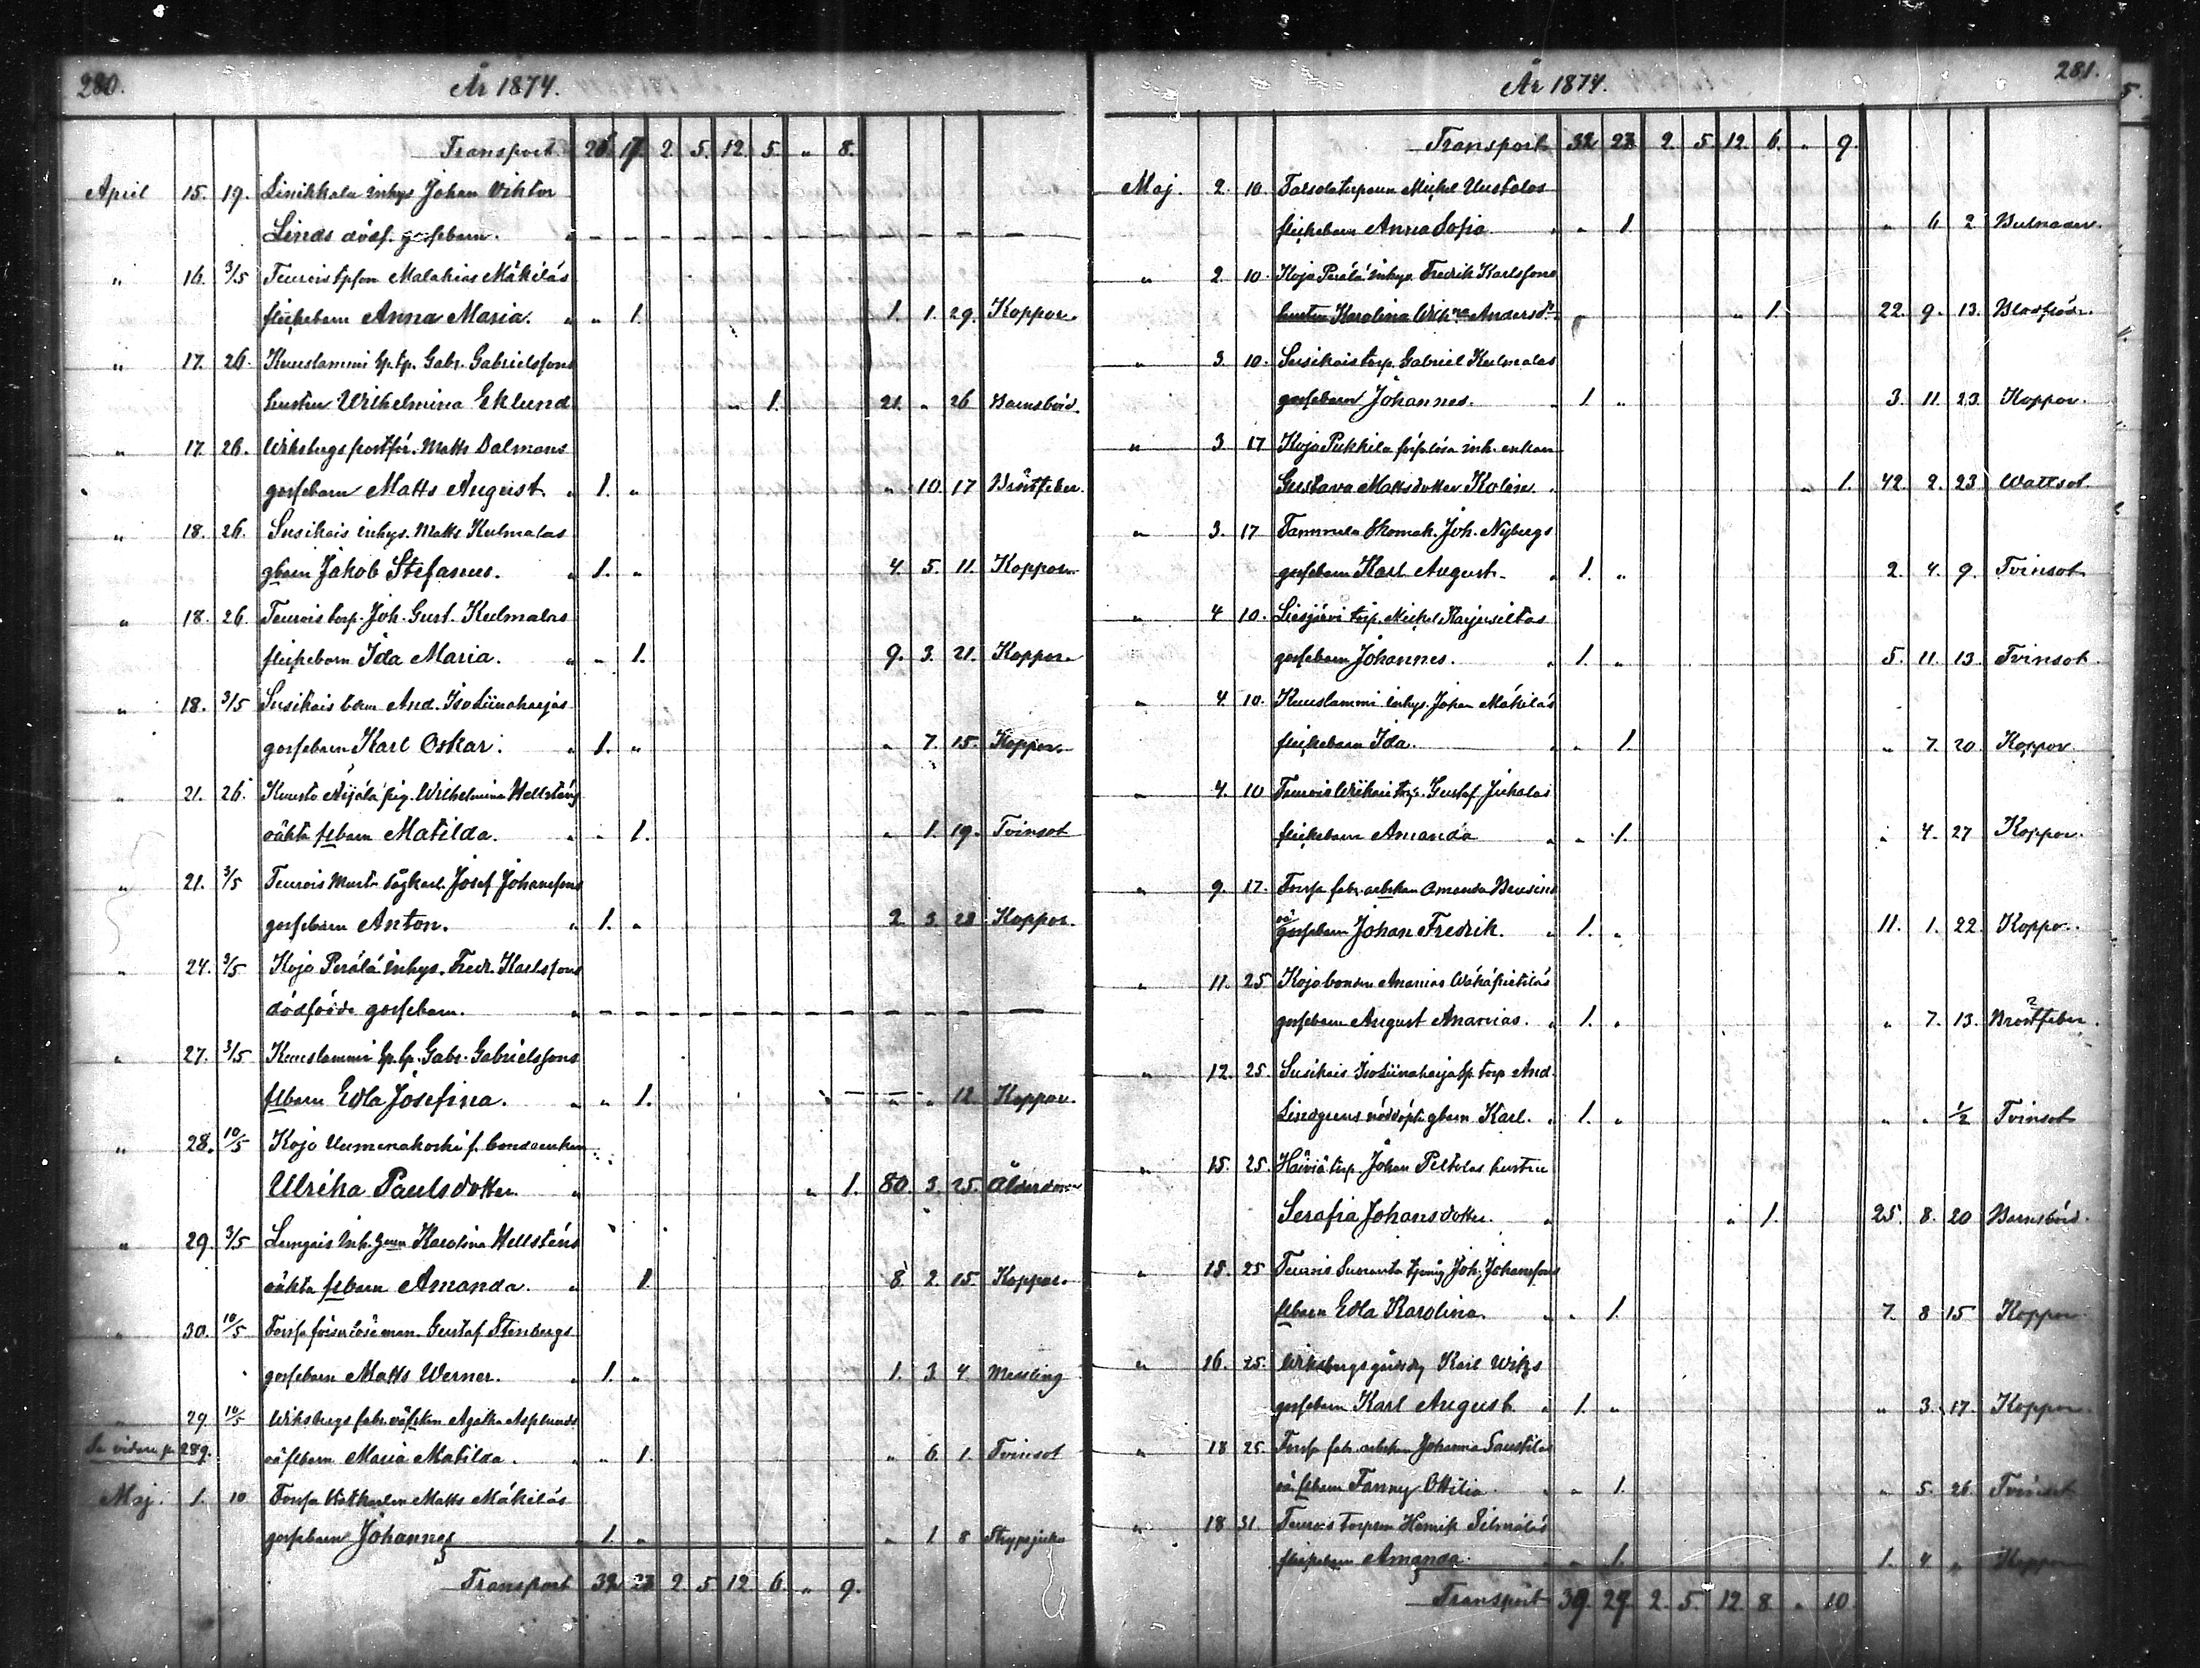 280.
År 1874.
Transport 26 17 2. 5. 12. 5. " 8.
April 15. 19. Linikkala inhys Johan Viktor
Linds dödf. gossebarn. " – – – – – – – – – – – –
" 16. 3/5 Teurois tpson Malakias Mäkiläs
flickebarn Anna Maria. " " 1. 1. 1. 29. Koppor.
" 17. 26. Kuuslammi sp. tp. Gabr. Gabrielssons
hustru Wilhelmina Eklund " 1. 21. " 26 Barnsbörd.
" 17. 26. Wiksbergs Matts Dalmans
gossebarn Matts August " 1. " " 10. 17 Bröstfeber.
" 18. 26. Susikais inhys. Matts Kulmalas
gbarn Jakob Stefanus. " 1. " 4. 5. 11. Koppor
" 18. 26. Teurois torp. Joh. Gust. Kulmalas
flickebarn Ida Maria. " " 1. 9. 3. 21. Koppor.
" 18. 3/5 Susikais And. Isoliinaharjas
gossebarn Karl Oskar. " 1. " " 7. 15. Koppor.
" 21. 26. Kuusto Äijälä pig. Wilhelmina Hellsténs
oäkta flbarn Matilda. " " 1. " 1. 19. Tvinsot
" 21. 3/5 Teurois Josef Johanssons
gossebarn Anton. " 1. " 2. 3. 28 Koppor.
" 24. 3/5 Kojo Perälä inhys. Fredr. Karlssons
dödfödde gossebarn. " – – – – – – – – – – – –
" 27. 3/5 Kuuslammi sp. tp. Gabr. Gabrielssons
flbarn Edla Josefina. " " 1. " " 12. Koppor.
" 28. 10/5 Kojo Uumenakoski f. bondeenkan
Ulrika Paulsdotter " " 1. 80. 3. 25. Ålderdom
" 29. 3/5 Lungois inh. Karolina Hellsténs
oäkta flbarn Amanda. " 1. 8 2. 15. Koppor.
" 30. 10/5 Forssa Gustaf Stenbergs
gossebarn Matts Werner. " 1. " 1. 3. 4. Messling
" 29. 10/5 Wiksbergs fabr. Agatha Asplunds
Se vidare p. 289.
oä flbarn Maria Matilda. " " 1. " 6. 1. Tvinsot
Maj. 1. 10 Forssa Matts Mäkiläs
gossebarn Johannes " 1. " " 1 8 Strypsjuka
Transport 32. 23 2. 5 12. 6. " 9.
281.
År 1874.
Transport 32 23 2. 5 12. 6. " 9.
Maj. 2. 10 Talsola torparen Michel Uustalos
flickebarn Anna Sofia " " 1. " 6 2 Bulnader.
" 2 10. Kojo Perälä inhys. Fredrik Karlssons
hustru Karolina Wilhna Andersdr " " 1. 22. 9. 13. Blodflöde.
" 3. 10. Susikais torp. Gabriel Kulmalas
gossebarn Johannes. " 1. " 3. 11. 23. Koppor.
" 3 17 Kojo Pukkila inh. enkan
Gustava Mattsdotter Kolin. " " 1. 42. 2. 23 Wattsot.
" 3. 17 Tammela skomak. Joh. Nybergs
gossebarn Karl August. " 1. " 2. 4. 9. Tvinsot
" 4 10. Liesjärvi torp. Michel Harjusiltas
gossebarn Johannes. " 1. " 5. 11. 13. Tvinsot.
" 4. 10. Kuuslammi inhys. Johan Mäkiläs
flickebarn Ida. " " 1. " 7. 20. Koppor.
" 4. 10 Teurois torp. Gustaf Juholas
flickebarn Amanda " " 1. " 4. 27 Koppor.
" 9. 17. Forssa fabr. arbkan Amanda
oä gossebarn Johan Fredrik. " 1. " 11. 1. 22. Koppor.
" 11. 25 Kojo bonden Ananias Wähäpietiläs
gossebarn August Ananias. " 1. " " 7. 13. Bröstfeber.
" 12. 25. Susikais Isoliinaharja sp. torp And.
Lindgrens nöddöpte gbarn Karl. " 1. " " " 1/2 Tvinsot
" 15. 25. Häiviä torp. Johan Peltolas hustru
Serafia Johansdotter. " " 1. 25. 8. 20 Barnsbörd.
" 15. 25 Teurois Joh. Johanssons
flbarn Edla Karolina. " " 1. 7. 8 15 Koppor
" 16. 25. Wiksbergs Karl
gossebarn Karl August. " 1. " " 3. 17. Koppor.
" 18 25. Forssa fabr. arbkan Johanna
oä flbarn Fanny Ottilia " " 1. " 5. 26. Tvinsot
" 18 31 Teurois torparen Henrik
flickebarn Amanda. " " 1. 1. 4 " Koppor
Transport 39. 29. 2. 5. 12. 8. " 10.